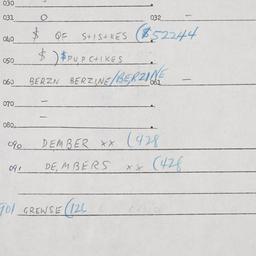 030
031 0 032 -
040 $ OF S+IS+RES ($52244
050 $ ) $PUPC+IKES
060 BERZN BERZINE/BERZINE 061 -
070 -
080 -
090 DEMBER xx (428
091 DE,MBERS xx (428
901 GREWSE (12L